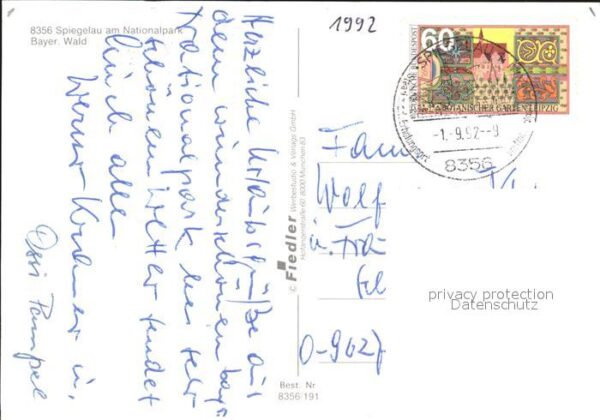 8356 Spiegelau am Nationalpark
Bayer. Wald
1992
60
DEUTSCHE BUNDESPOST
BOTANISCHER GARTEN LEIPZIG
SPIEGELAU
-1.-9.92--9
8356
Herzliche Urlaubsgrüße aus
dem wunderschönen bayr.
Nationalpark bei sehr
schönem Wetter sendet
Euch allen
Werner Kirchner u.
Ossi Pampel
© Fiedler Werbestudio & Verlags GmbH
8000 München 83
Best. Nr
8356 191
Fam
Wolf
O-9627
privacy protection
Datenschutz